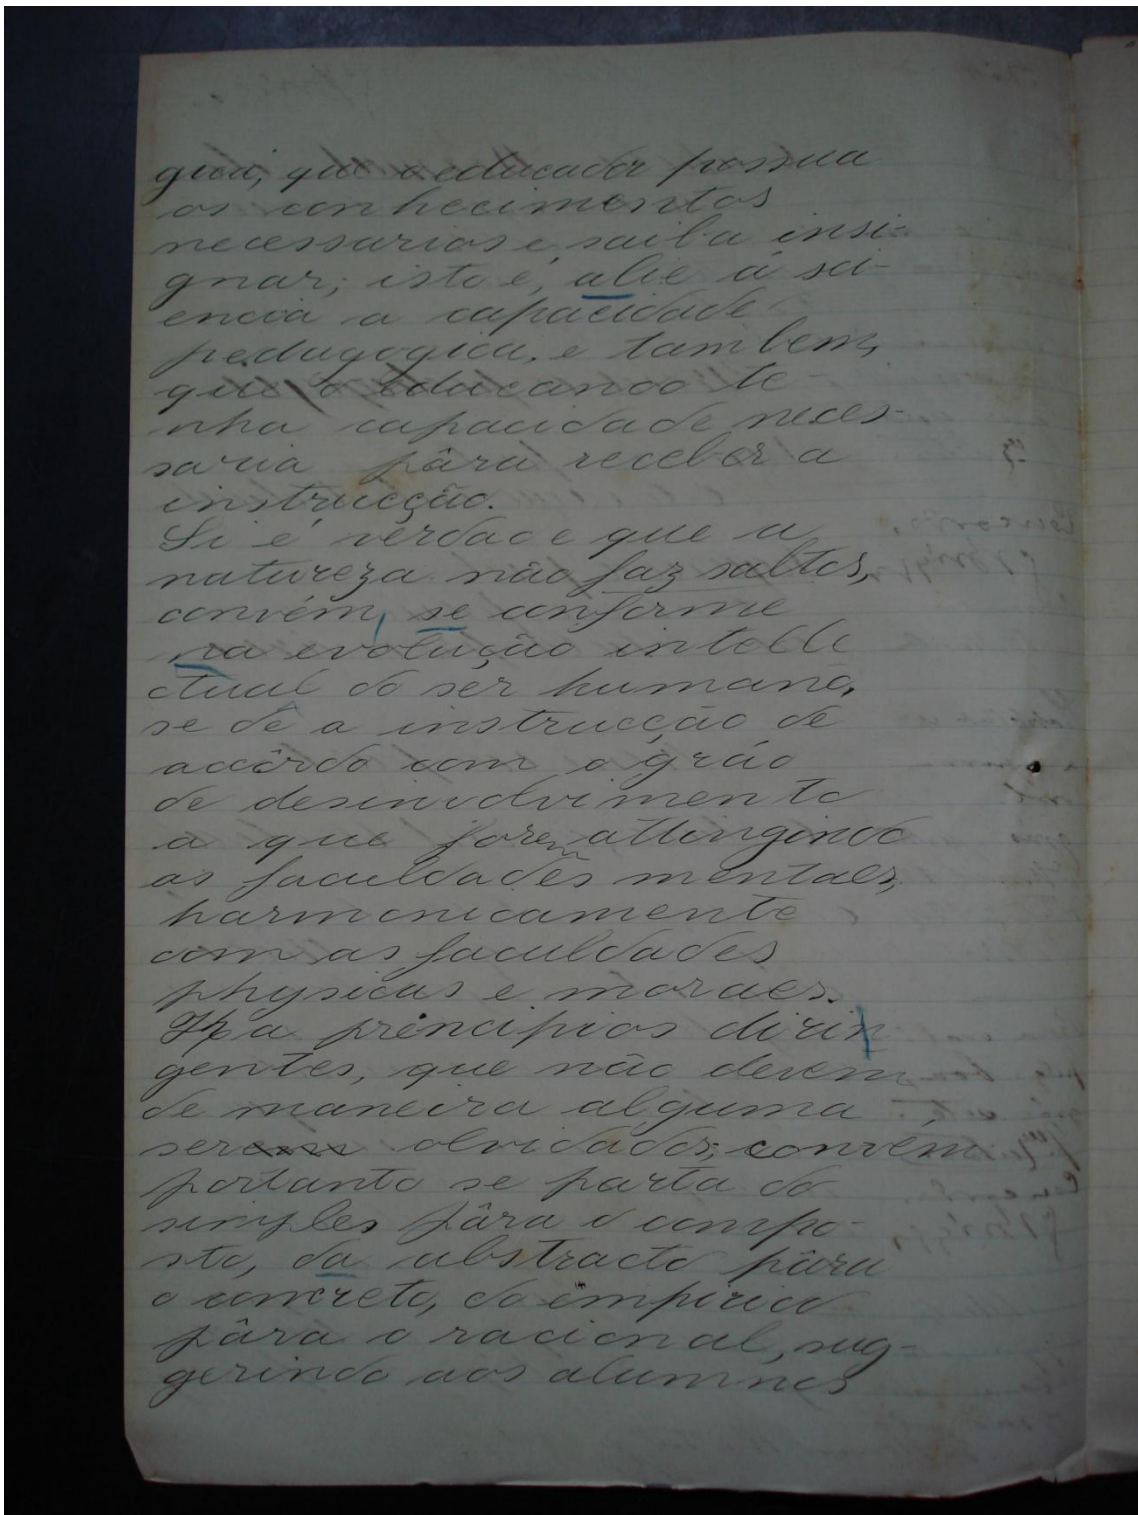 gica, que o educador possua
os conhecimentos
necessarios e, saiba insi-
gnar; isto é, alie á sci-
encia a capacidade
pedagogica, e tambem,
que o educando te-
nha capacidade neces-
saria pâra receber a
instrucção.
Si é verdade que a
natureza não faz saltos,
convém, se conforme
na evolução intelle
ctual do ser humano,
se dê a instrucção de
acôrdo com o gráo
de desinvolvimento
a que forem attingindo
as faculdades mentaes,
harmonicamente
com as faculdades
physicas e moraes.
Ha principios dirin
gentes, que não devem
de maneira alguma
serem olvidados; convém
portanto se parta do
simples pâra o compo-
sto, da abstracto pâra
o concreto, do impirico
pâra o racional, sug-
gerindo aos alumnos